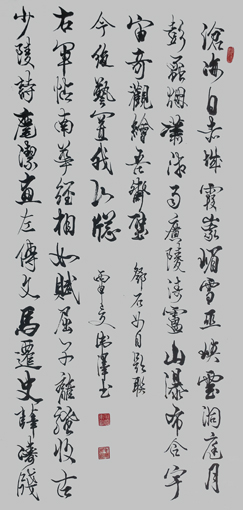 滄海日赤城霞峨嵋雪巫峽雲洞庭月
彭蠡烟瀟湘雨廣陵濤廬山瀑布合宇
宙奇觀繪吾齋壁
鄧石如自題聯
少陵詩摩詰畫左傳文馬遷史薛濤牋
右軍帖南華經相如賦屈子離騷收古
今絕藝置我山窗
書